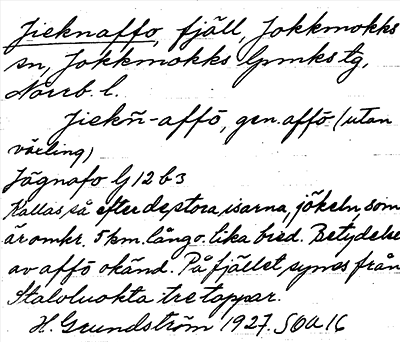 Jieknaffo, fjäll, Jokkmokks
sn, Jokkmokks lpmks tg,
Norrb. l.
Jiekñ-affō, gen. affō (utan
växling)
Jägnafo G 12 b 3
Kallas så efter de stora isarna, jökeln, som
är omkr. 5 km. lång o. lika bred. Betydelse
av affō okänd. På fjället synes från
Staloluokta tre toppar.
H. Grundström 1927. SOA 16